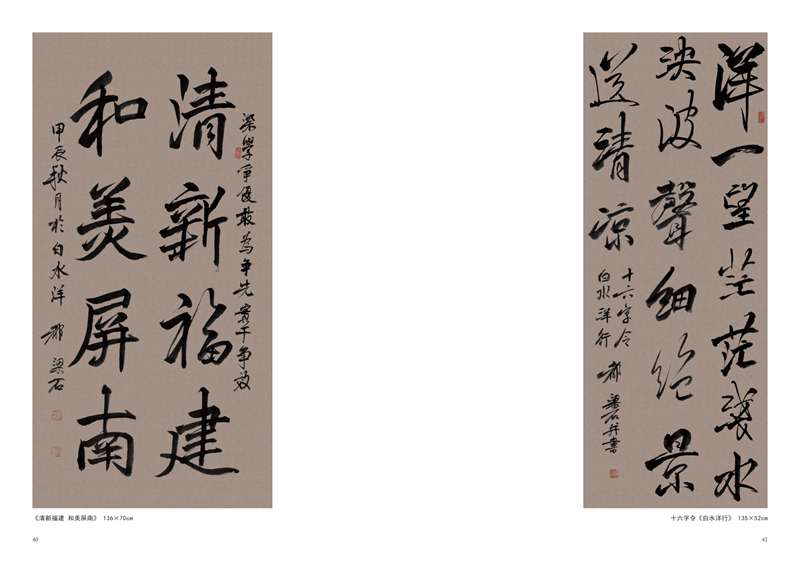 深學爭優敢為争先實干争效
清新福建
和美屏南
甲辰秋月於白水洋 梁石
《清新福建 和美屏南》 136×70cm
40
洋一望茫茫淺水
泱波聲細絕景
送清凉
十六字令
白水洋行
梁石并書
十六字令《白水洋行》 135×52cm
41